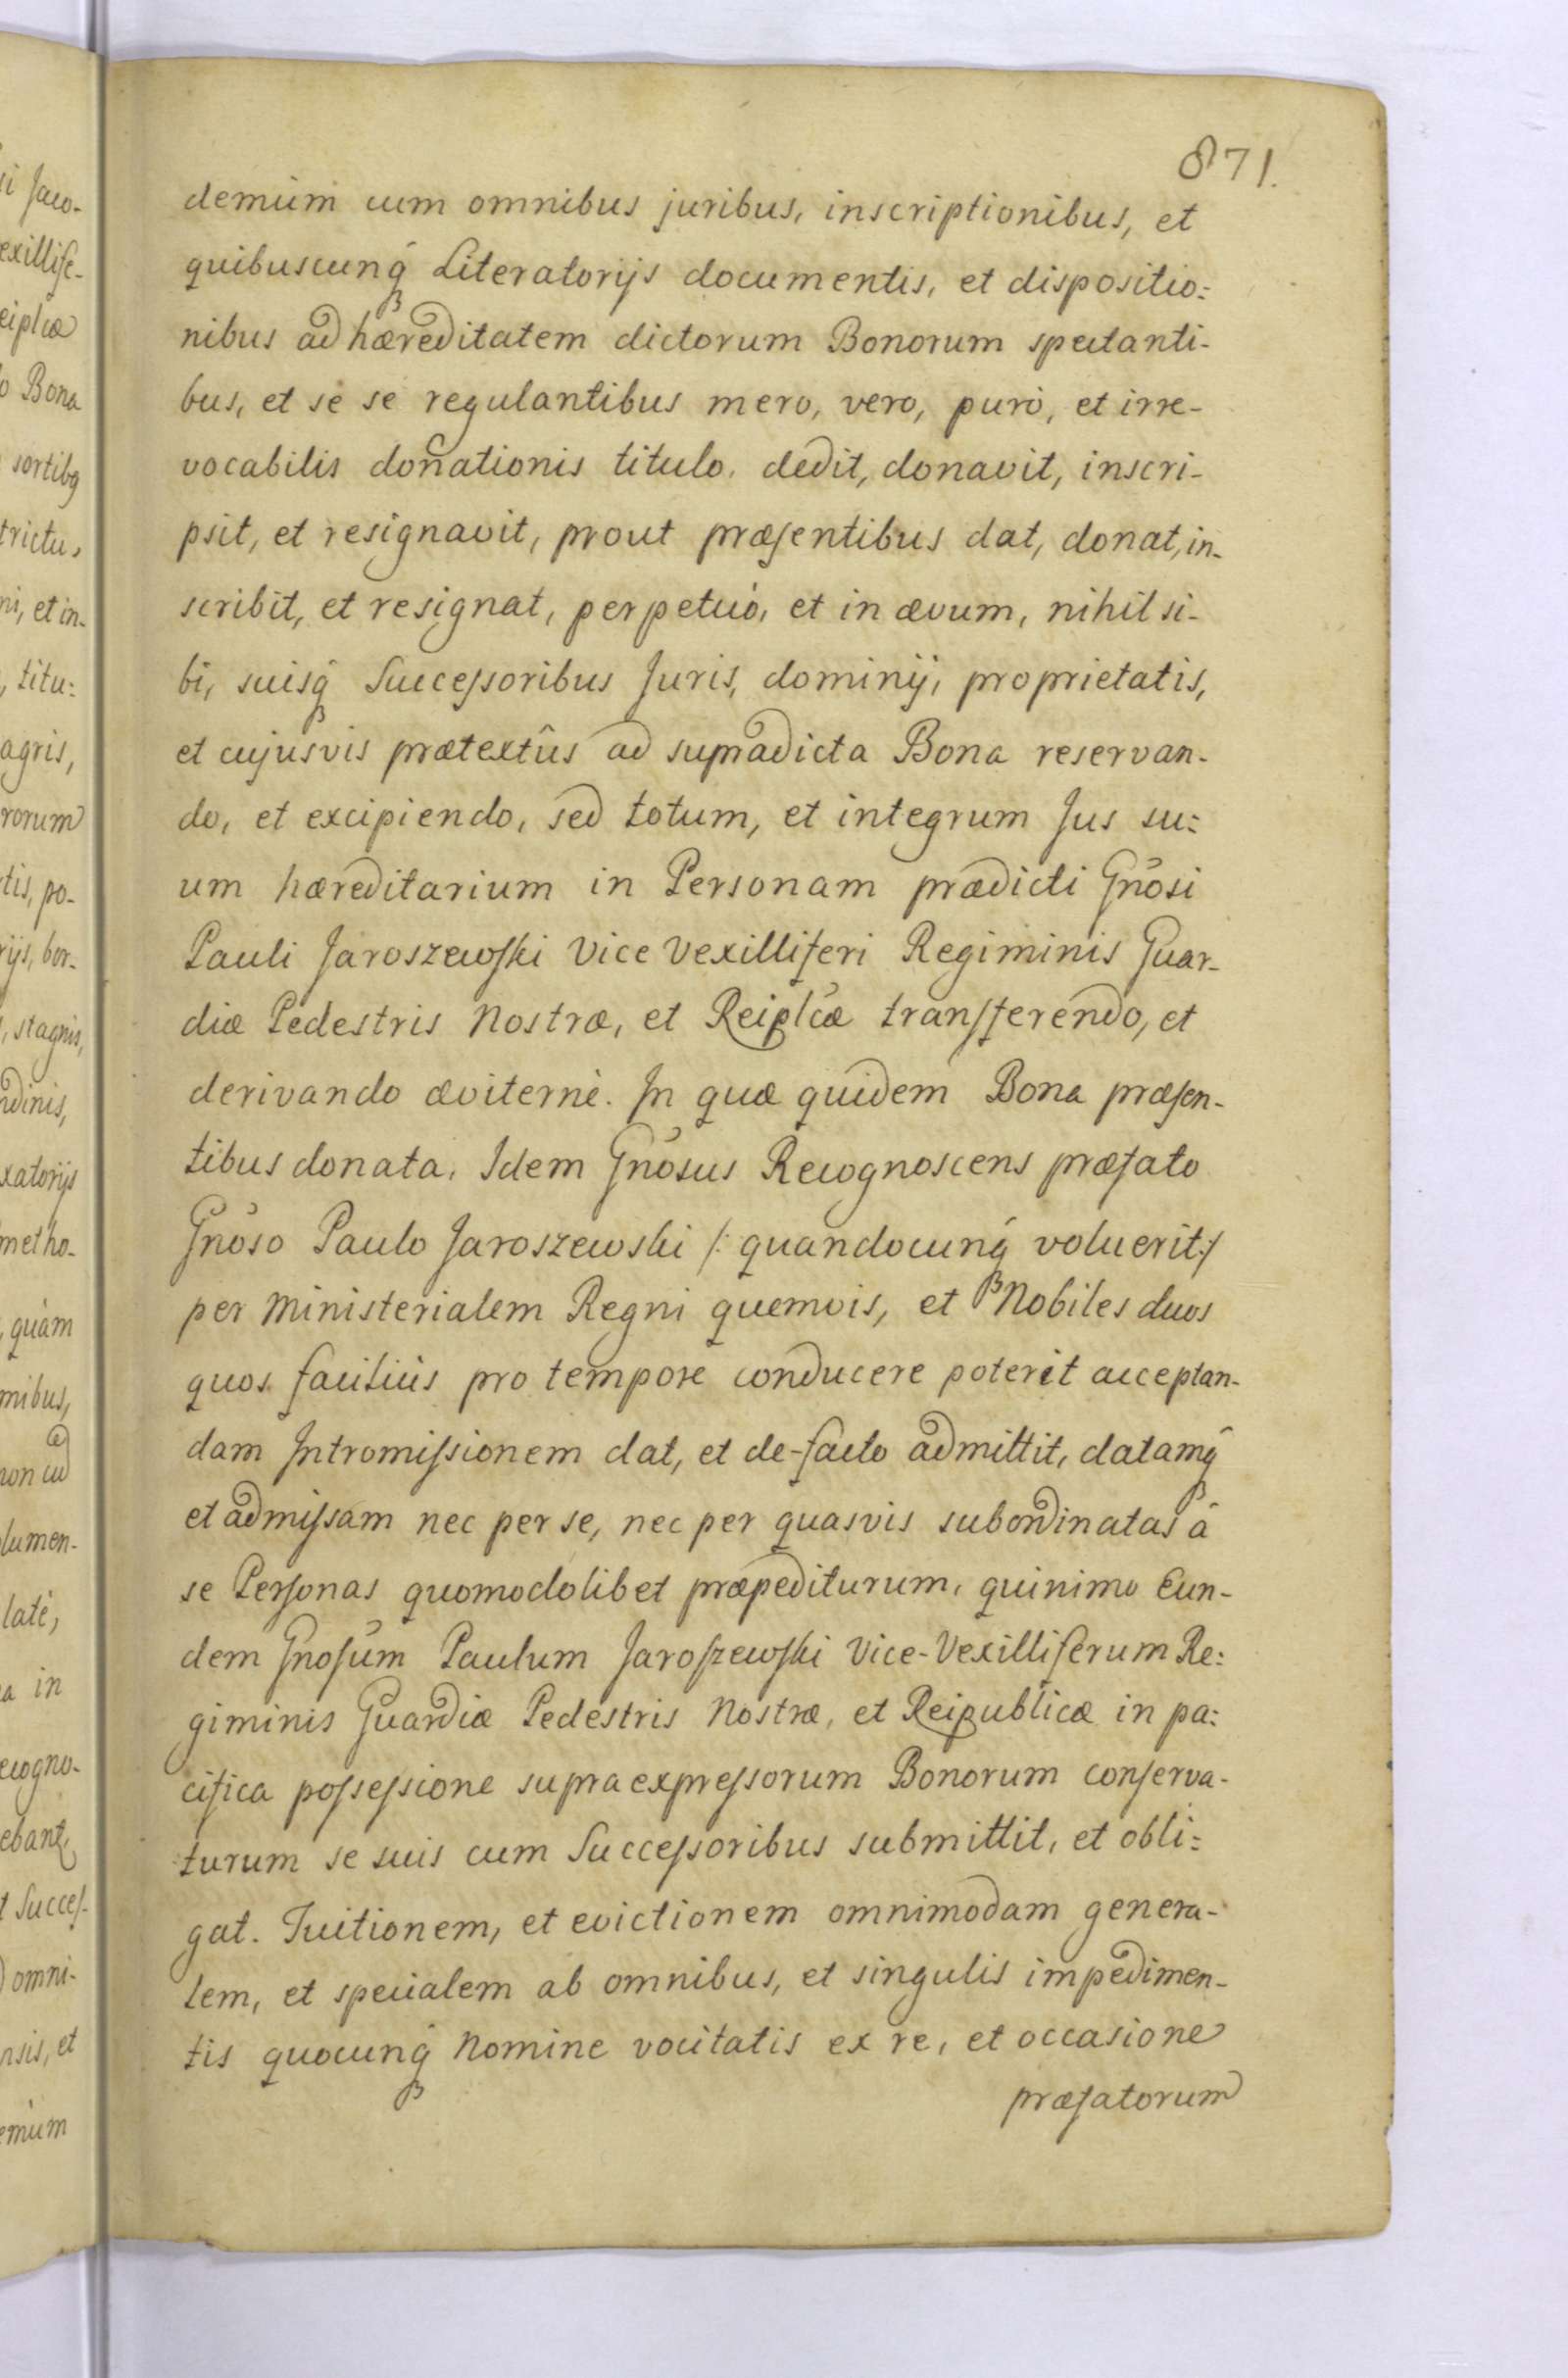 871.
demùm cum omnibus juribus, inscriptionibus, et
quibuscunq́ Literatorijs documentis, et dispositio:
nibus ad hæreditatem dictorum Bonorum spectanti-
bus, et se se regulantibus mero, vero, puro, et irre-
vocabilis donationis titulo. dedit, donavit, inscri-
psit, et resignavit, prout præsentibus dat, donat, in-
scribit, et resignat, perpetuò, et in ævum, nihil si-
bi, suisq́ Successoribus Juris, dominij, proprietatis,
et cujusvis prætextûs ad supradicta Bona reservan-
do, et excipiendo, sed totum, et integrum Jus su:
um hæreditarium in Personam prædicti Gnősi
Pauli Jaroszewski Vice Vexilliferi Regiminis Guar-
diæ Pedestris Nostræ, et Reiplcæ transferendo, et
derivando æviternè. In quæ quidem Bona præsen-
tibus donata, Idem Gnősus Recognoscens præfato
Gnőso Paulo Jaroszewski /: quandocunq́ voluerit :/
per Ministerialem Regni quemvis, et Nobiles duos
quos faciliùs pro tempore conducere poterit acceptan-
dam Intromissionem dat, et de-facto admittit, datamq́
et admissam nec per se, nec per quasvis subordinatas â
se Personas quomodolibet præpediturum, quinimo Eun-
dem Gnősum Paulum Jaroszewski Vice-Vexilliferum Re:
giminis Guardiæ Pedestris Nostræ, et Reipublicæ in pa:
cifica possessione supra expressorum Bonorum conserva-
turum se suis cum Successoribus submittit, et obli:
gat. Tuitionem, et evictionem omnimodam genera-
lem, et specialem ab omnibus, et singulis impedimen-
tis quocunq́ Nomine vocitatis ex re, et occasione
præfatorum